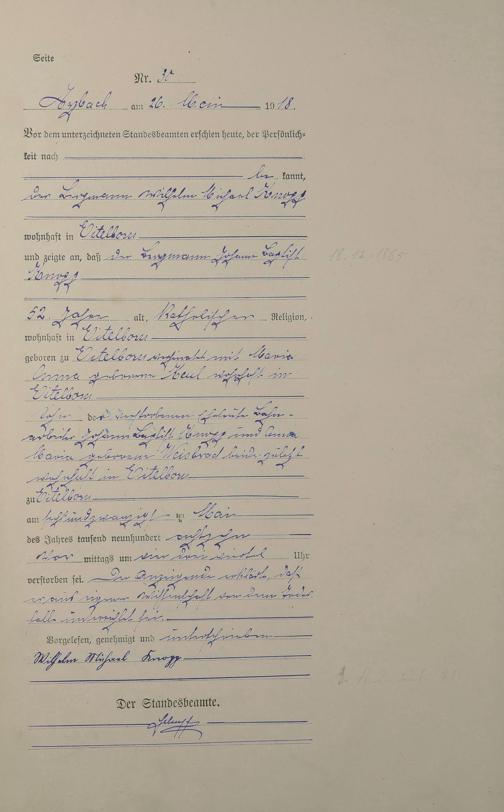 Seite
Nr. 30
Arzbach am 26. Mai 1918.
Vor dem unterzeichneten Standesbeamten erschien heute, der Persönlich-
keit nach
be kannt,
der Bergmann Wilhelm Michael Knopp
wohnhaft in Eitelborn
und zeigte an, daß der Bergmann Johann Baptist
Knopp
18.12.1865
52 Jahre alt, Katholischer Religion,
wohnhaft in Eitelborn
geboren zu Eitelborn verheiratet mit Maria
Anna geborene Keul wohnhaft in
Eitelborn
Sohn der verstorbenen Eheleute Bahn-
arbeiter Johann Baptist Knopp und Anna
Maria geborene Weisbrod beide zuletzt
wohnhaft in Eitelborn
zu Eitelborn
am sechsundzwanzigsten Mai
des Jahres tausend neunhundert achtzehn
Vor mittags um vier drei viertel Uhr
verstorben sei. Der Anzeigende erklärte, daß
er aus eigener Wissenschaft von dem Sterbe
falle unterrichtet sei.
Vorgelesen, genehmigt und unterschrieben
Wilhelm Michael Knopp
Der Standesbeamte.